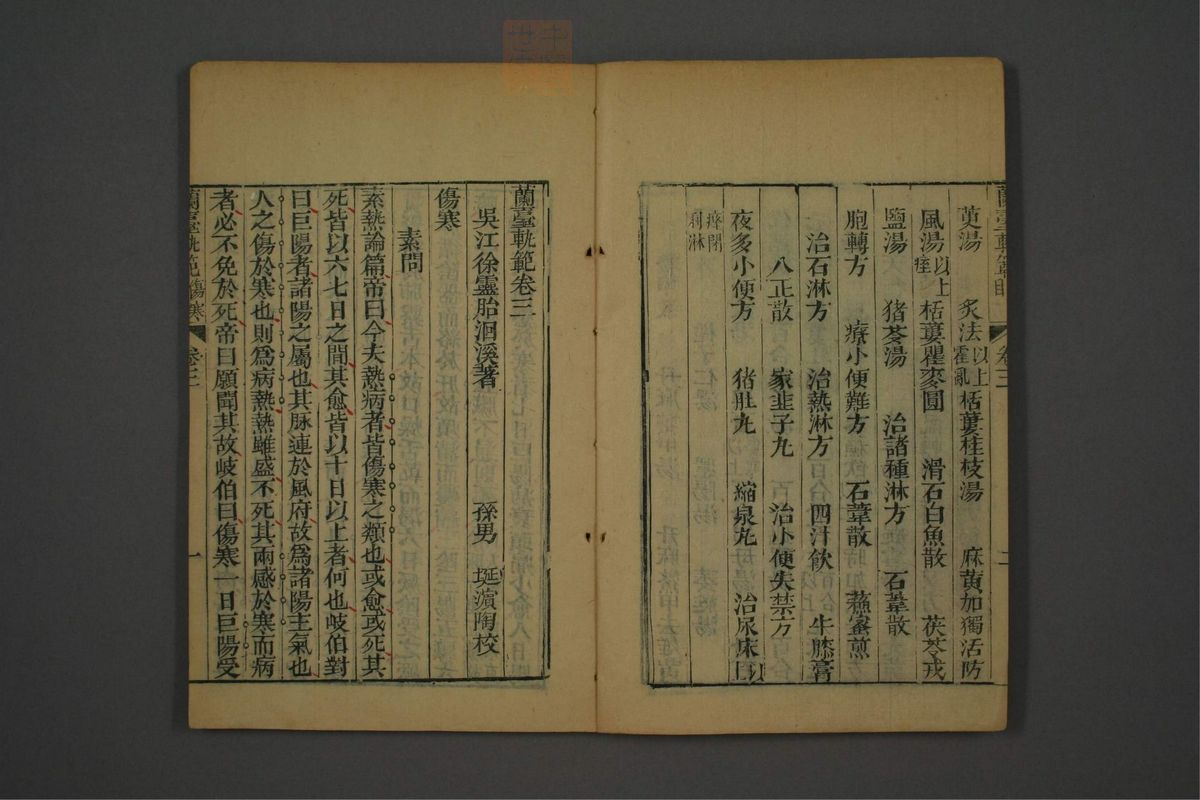 蘭臺軌範目 卷三 二
萸湯 炙法以上霍亂 栝蔞桂枝湯 麻黃加獨活防
風湯以上痙 栝蔞瞿麥圓 滑石白魚散 茯苓戎
鹽湯 猪苓湯 治諸種淋方 石葦散
胞轉方 療小便難方 石葦散 蘇蜜煎
治石淋方 治熱淋方 四汁飲 牛膝膏
八正散 家韭子丸 治小便失禁方
夜多小便方 猪肚丸 縮泉丸 治尿床以上
癃閉利淋
蘭臺軌範卷三
吳江徐靈胎洄溪著 孫男 埏濵陶校
傷寒
素問
素熱論篇帝曰今夫熱病者皆傷寒之類也或愈或死其
死皆以六七日之間其愈皆以十日以上者何也岐伯對
曰巨陽者諸陽之屬也其脉連於風府故爲諸陽主氣也
人之傷於寒也則爲病熱熱雖盛不死其兩感於寒而病
者必不免於死帝曰願聞其故岐伯曰傷寒一日巨陽受
蘭臺軌範傷寒 卷三 一